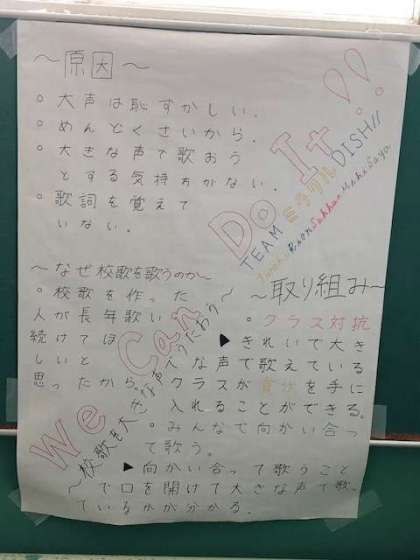 ～原因～
○大声は恥ずかしい.
○めんどくさいから.
○大きな声で歌おう
とする気持ちがない.
○歌詞を覚えて
いない.
We Can Do It!!
TEAM
DISH//
～なぜ校歌を歌うのか～
○校歌を作った
人が長年歌い
続けてほ
しいと
思ったから。
～校歌を大きな声でうたおう～
～取り組み～
○クラス対抗
▶きれいで大き
な声で歌えている
クラスが
を手に
入れることができる。
○みんなで向かい合っ
て歌う。
▶向かい合って歌うこと
で口を開けて大きな声で歌っ
ているかが分かる.